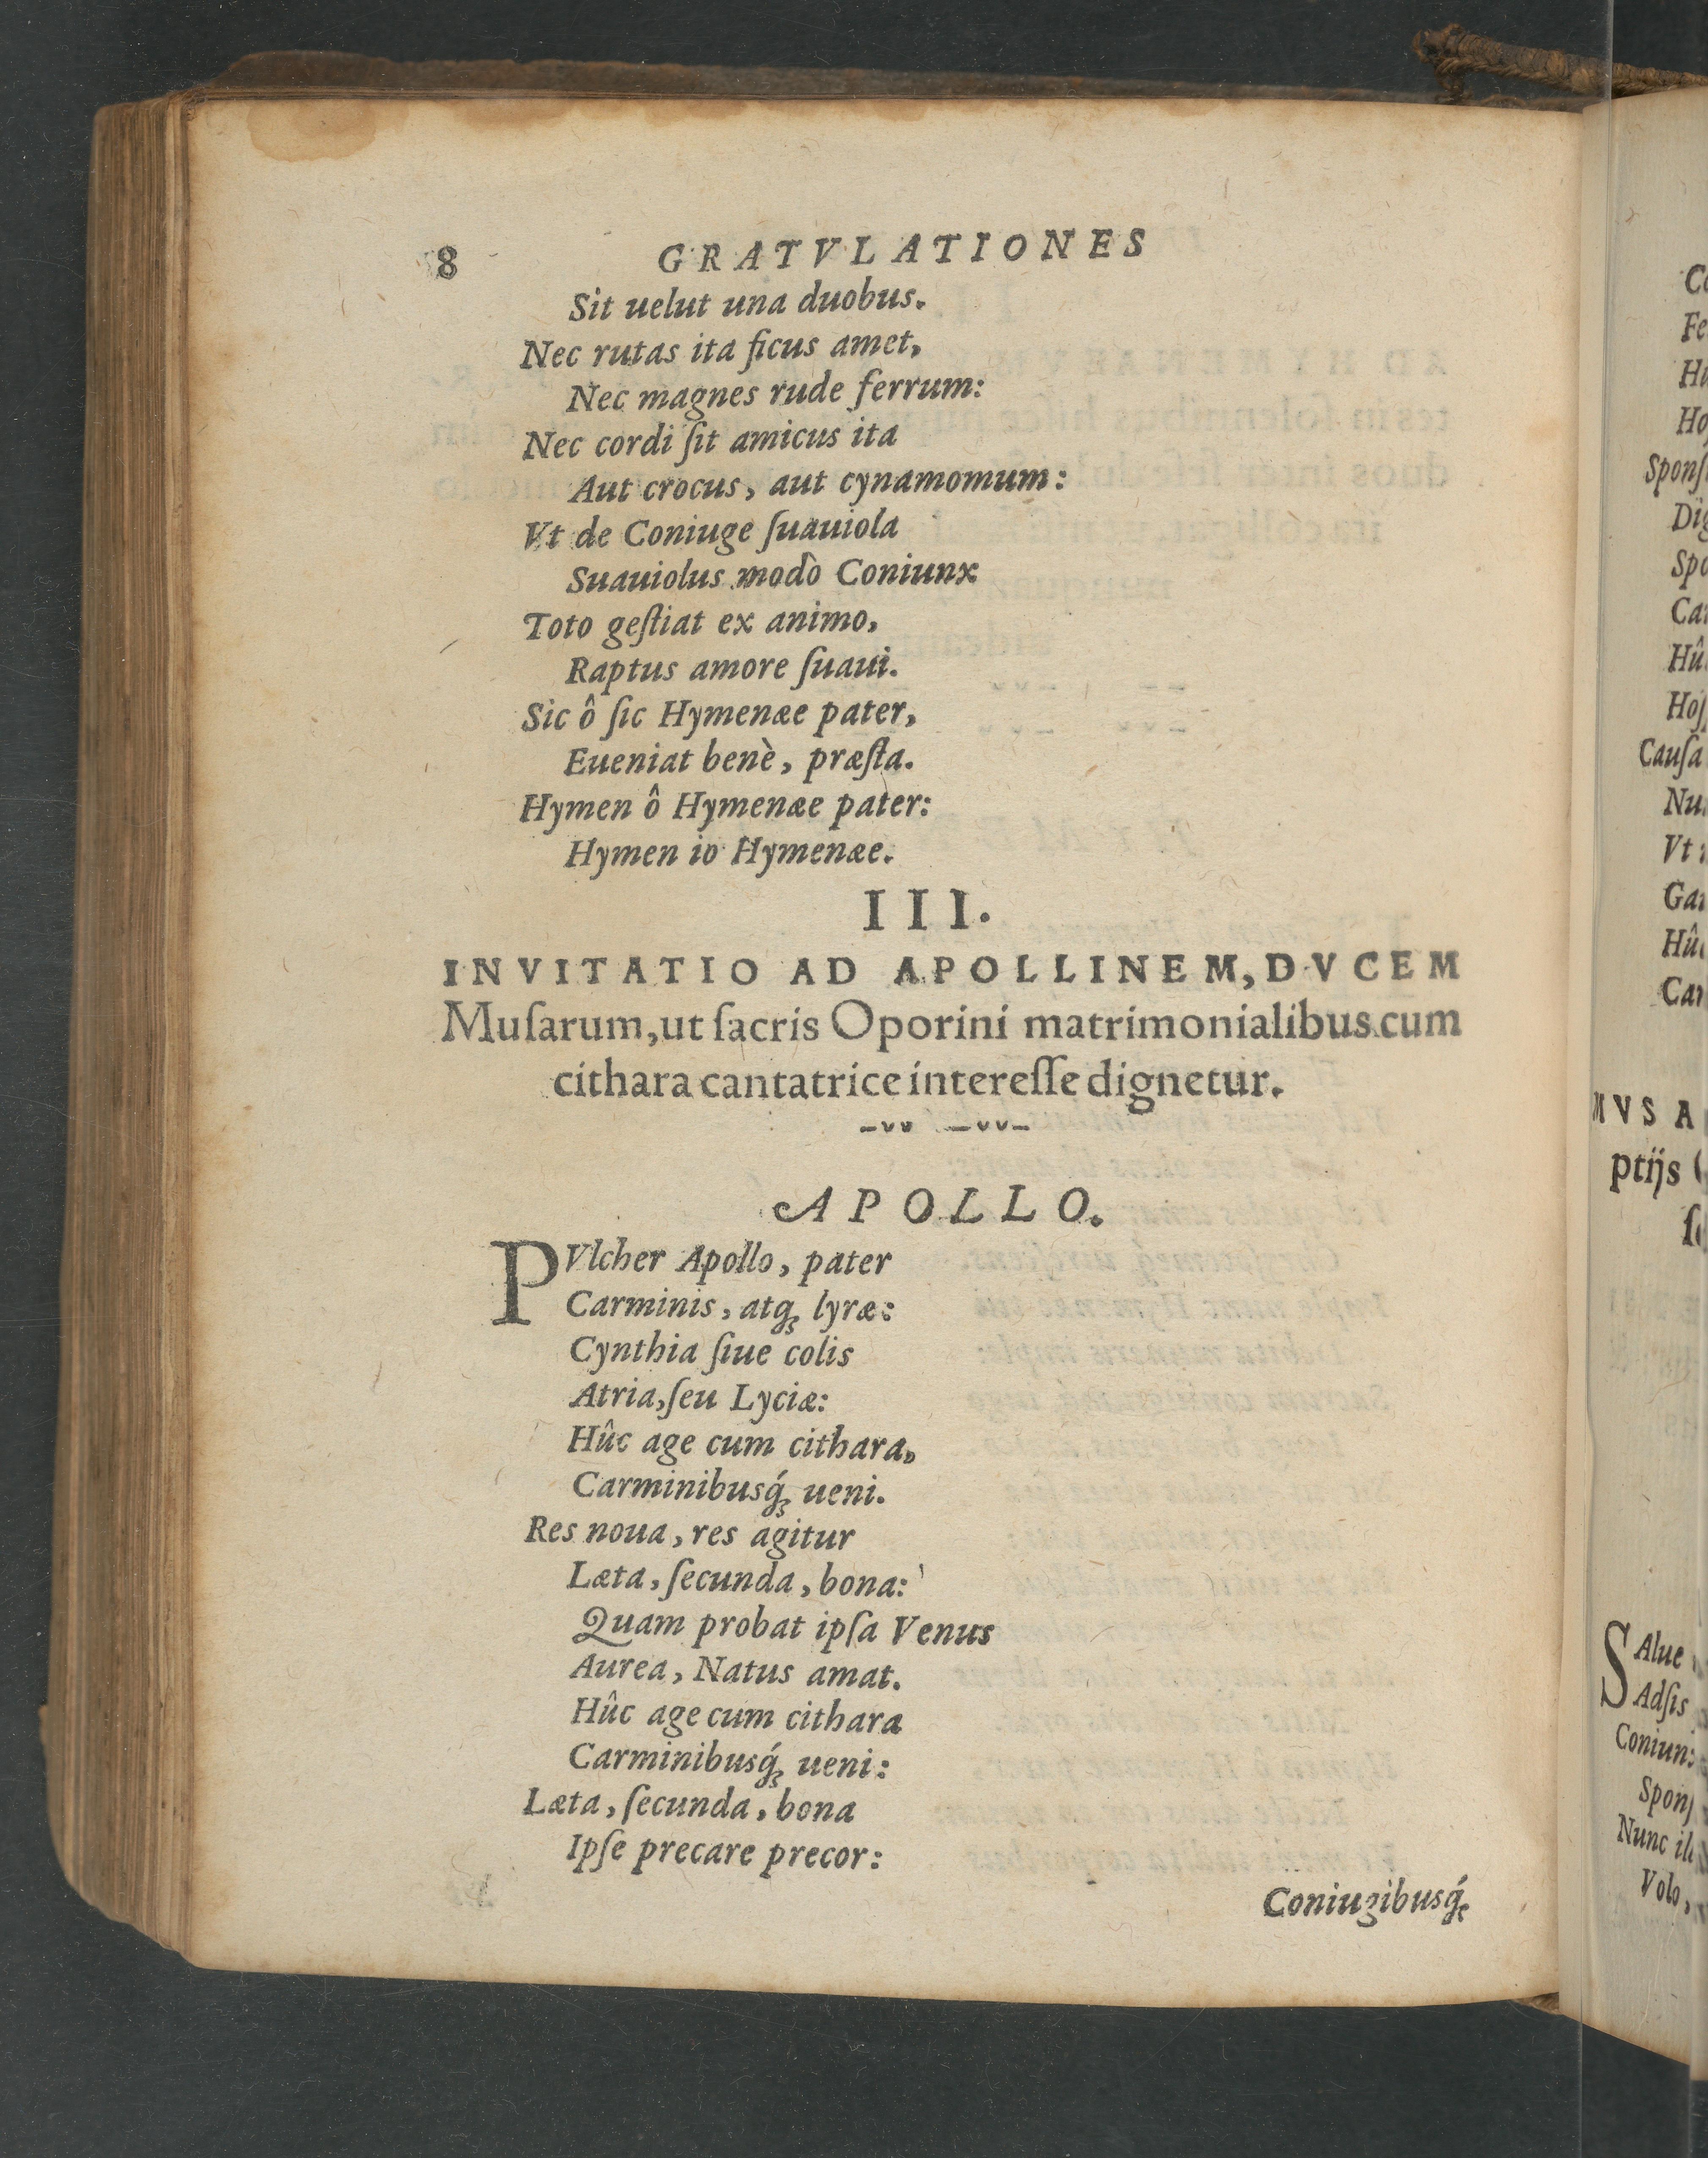 8 GRATVLATIONES
Sit uelut una duobus.
Nec rutas ita ficus amet,
Nec magnes rude ferrum:
Nec cordi ſit amicus ita
Aut crocus, aut cynamomum:
Vt de Coniuge ſuauiola
Suauiolus modò Coniunx
Toto geſtiat ex animo,
Raptus amore ſuaui.
Sic ô ſic Hymenæe pater,
Eueniat benè, præſta.
Hymen ô Hymenæe pater:
Hymen io Hymenæe.
III.
INVITATIO AD APOLLINEM, DVCEM
Muſarum, ut ſacris Oporini matrimonialibus cum
cithara cantatrice intereſſe dignetur.
–vv –vv–
APOLLO.
PVlcher Apollo, pater
Carminis, atq; lyræ:
Cynthia ſiue colis
Atria, ſeu Lyciæ:
Hûc age cum cithara,
Carminibusq́; ueni.
Res noua, res agitur
Læta, ſecunda, bona:
Quam probat ipſa Venus
Aurea, Natus amat.
Hûc age cum cithara
Carminibusq́; ueni:
Læta, ſecunda, bona
Ipſe precare precor:
Coniugibusq́;
Sponſ
Cauſa
Vt
MVSA
ptijs
SAlue
Adſis
Coniun
Sponſ
Nunc
Volo,